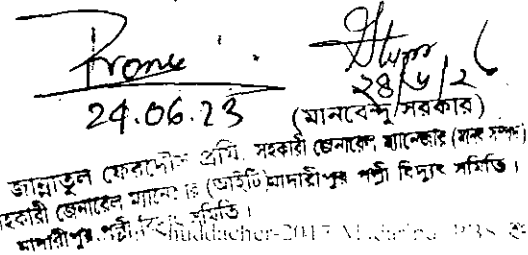 Promi
24.06.23
২৪/৬/২
(মানবেন্দু সরকার)
জান্নাতুল ফেরদৌস প্রমি
সহকারী জেনারেল ম্যানেজার (মানব সম্পদ)
সহকারী জেনারেল ম্যানেজার (আইটি)
মাদারীপুর পল্লী বিদ্যুৎ সমিতি।
মাদারীপুর পল্লী বিদ্যুৎ সমিতি।